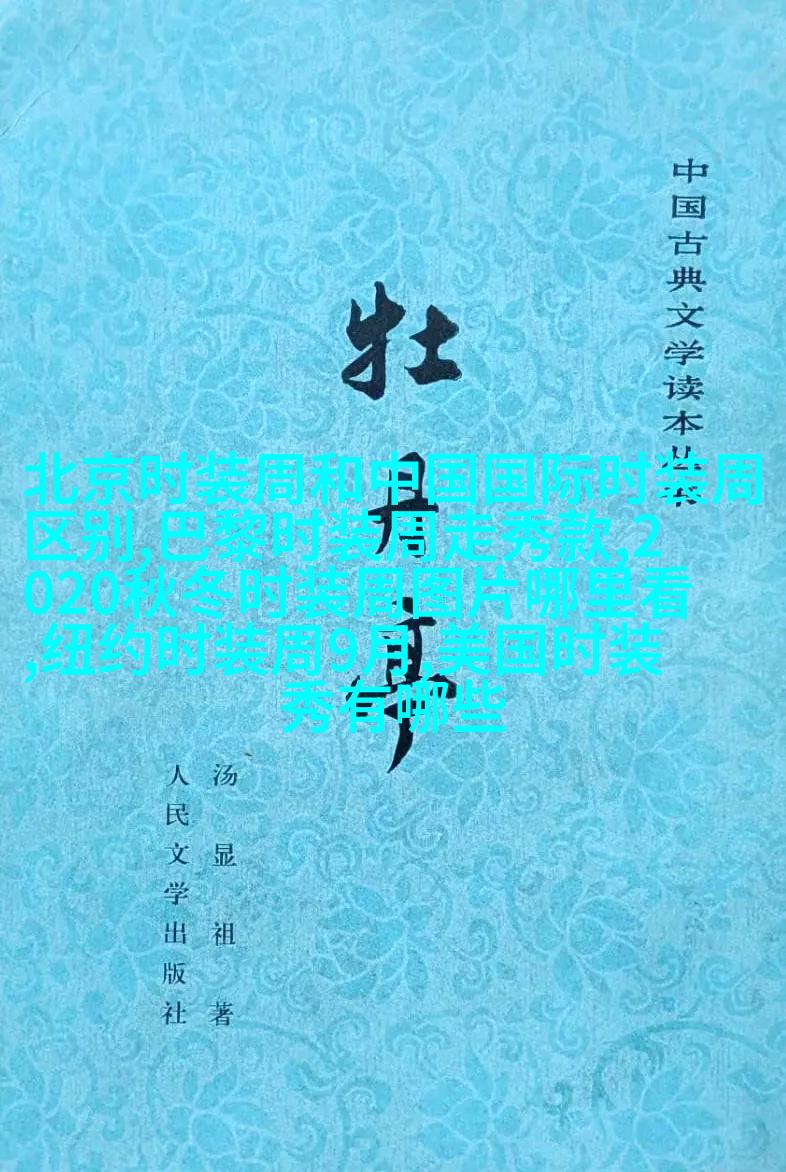 中国古典文学读本丛书
牡丹亭
北京时装周和中国国际时装周
区别,巴黎时装周走秀款,2
020秋冬时装周图片哪里看
,纽约时装周9月,美国时装
秀有哪些
汤显祖著
人民文学出版社